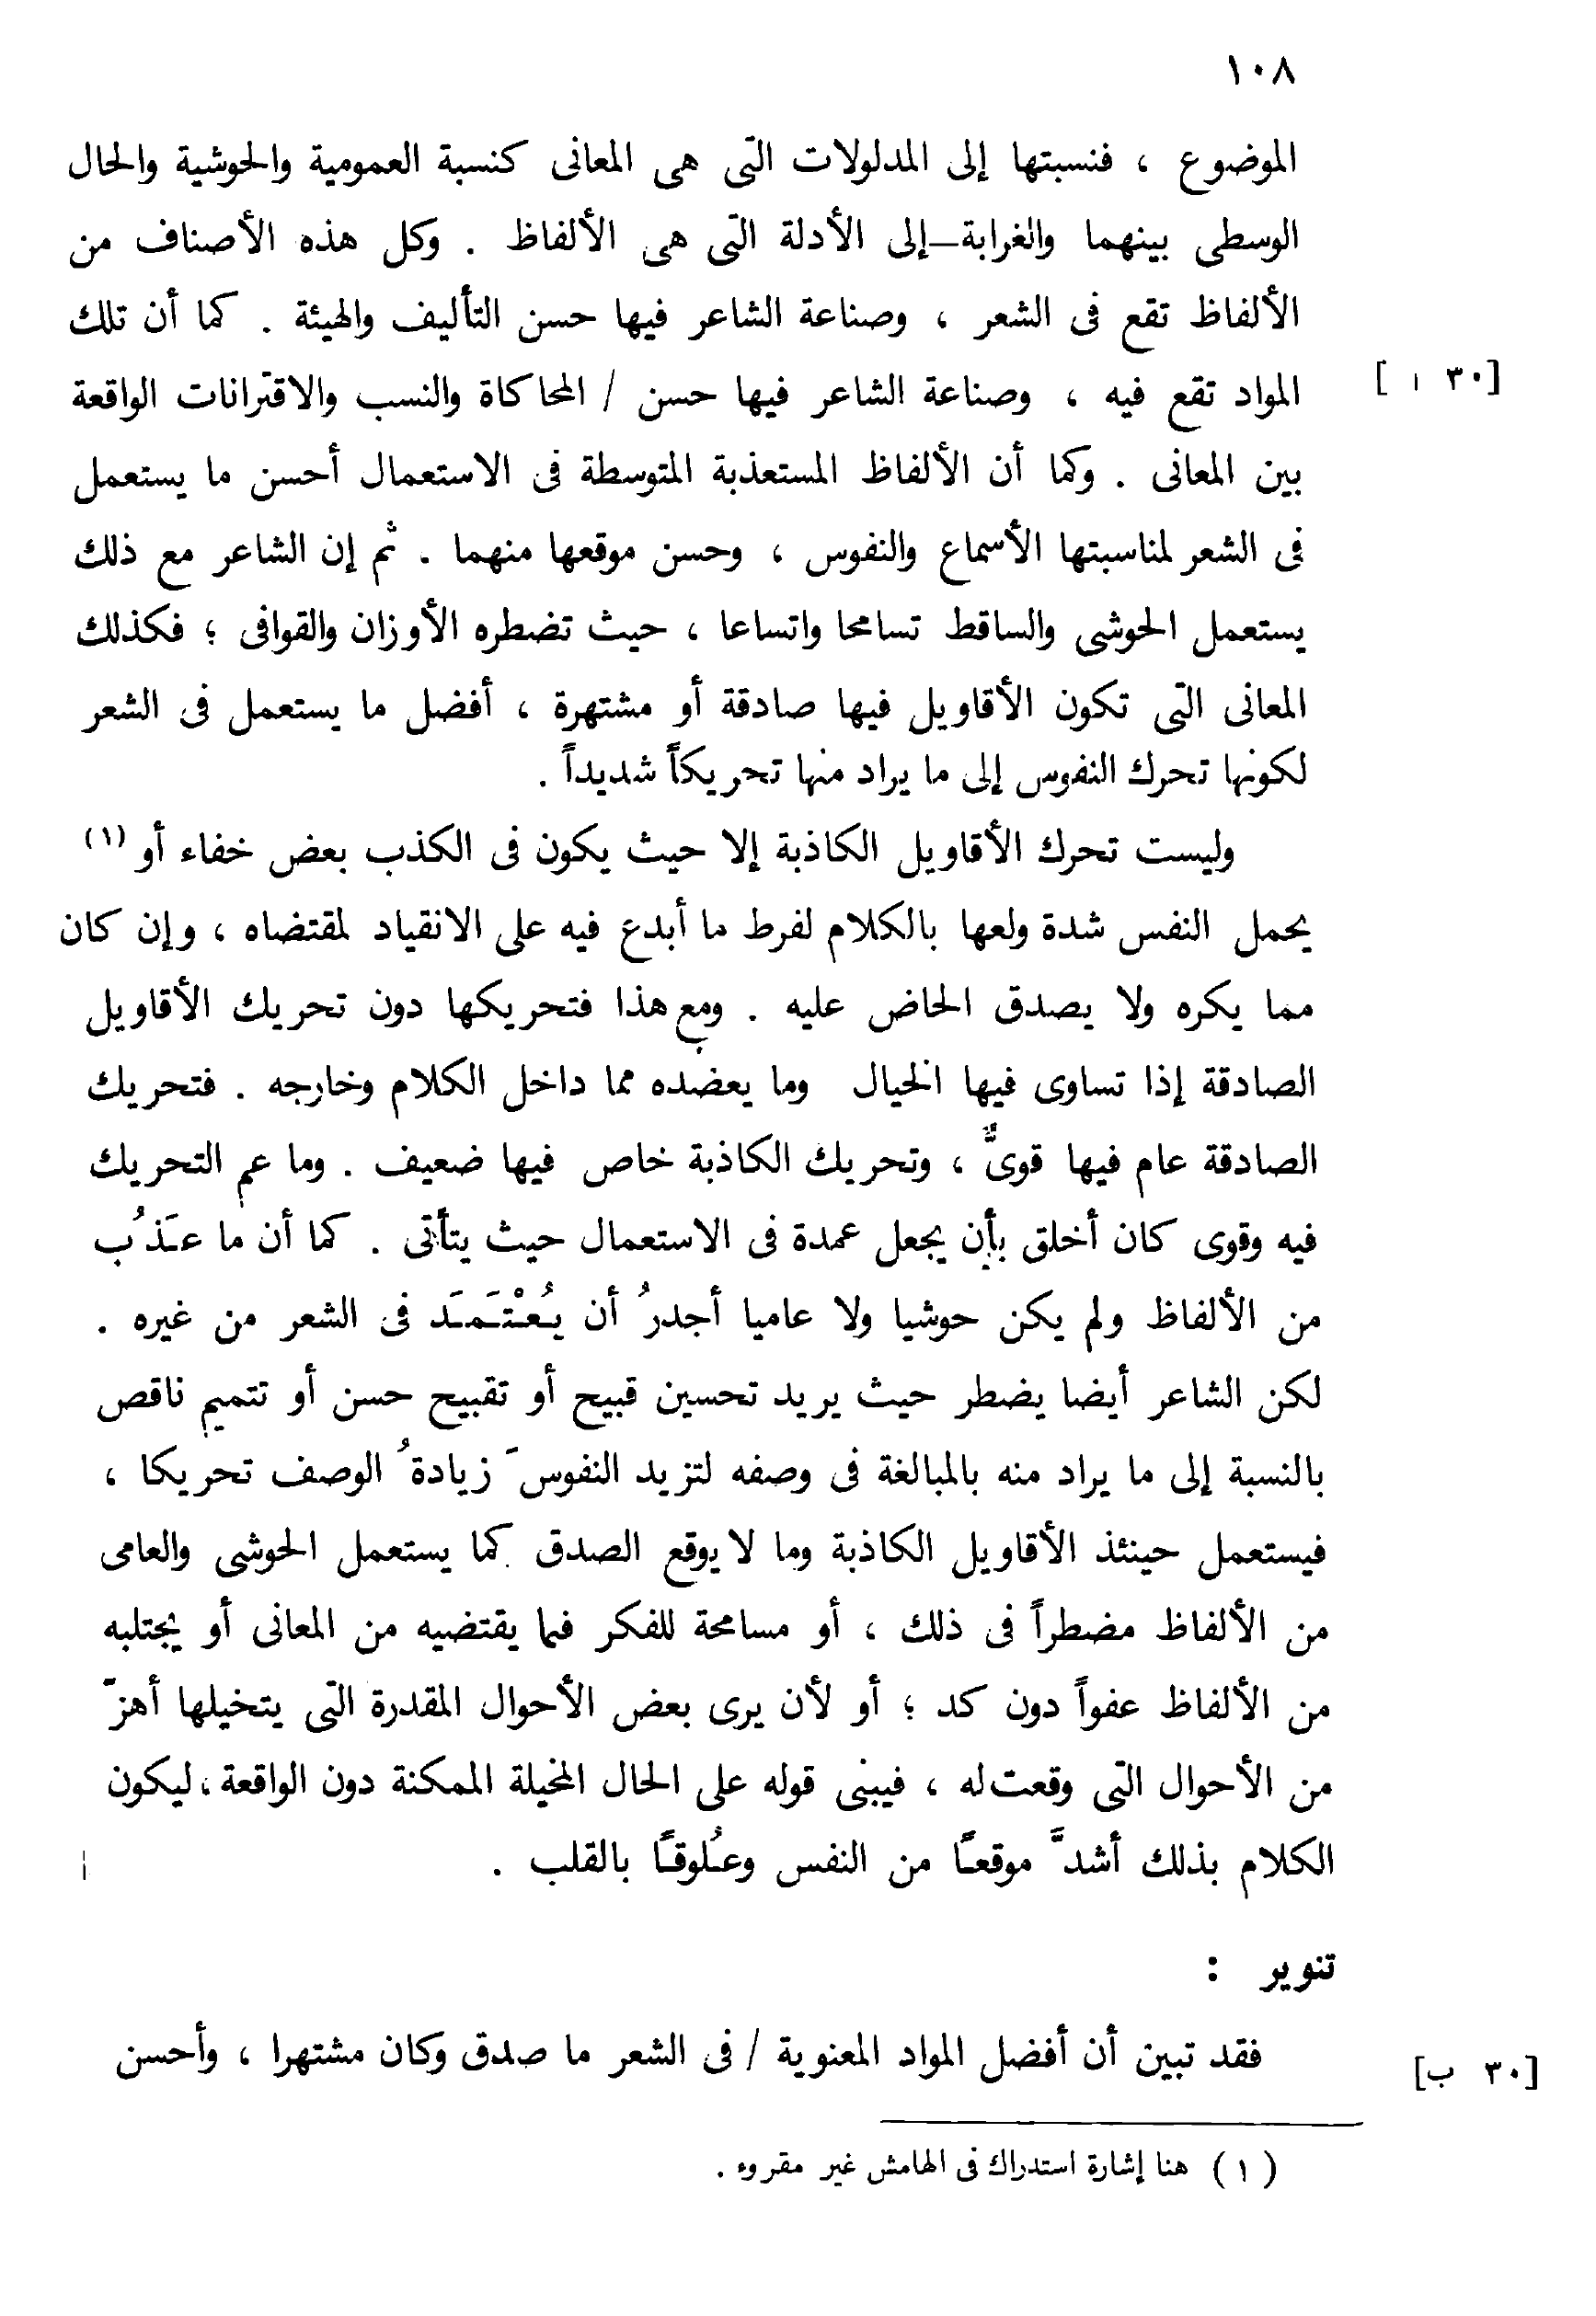 ١٠٨
الموضوع ، فنسبتها إلى المدلولات التى هى المعانى كنسبة العمومية والحوشية والحال
الوسطى بينهما والغرابة–إلى الأدلة التى هى الألفاظ . وكل هذه الأصناف من
الألفاظ تقع فى الشعر ، وصناعة الشاعر فيها حسن التأليف والهيئة . كما أن تلك
المواد تقع فيه ، وصناعة الشاعر فيها حسن / المحاكاة والنسب والاقترانات الواقعة [٣٠ ا ]
بين المعانى . وكما أن الألفاظ المستعذبة المتوسطة فى الاستعمال أحسن ما يستعمل
فى الشعر لمناسبتها الأسماع والنفوس ، وحسن موقعها منهما . ثم إن الشاعر مع ذلك
يستعمل الحوشى والساقط تسامحا واتساعا ، حيث تضطره الأوزان والقوافى ؛ فكذلك
المعانى التى تكون الأقاويل فيها صادقة أو مشتهرة ، أفضل ما يستعمل فى الشعر
لكونها تحرك النفوس إلى ما يراد منها تحريكاً شديداً .
وليست تحرك الأقاويل الكاذبة إلا حيث يكون فى الكذب بعض خفاء أو (١)
يحمل النفس شدة ولعها بالكلام لفرط ما أبدع فيه على الانقياد لمقتضاه ، وإن كان
مما يكره ولا يصدق الحاض عليه . ومع هذا فتحريكها دون تحريك الأقاويل
الصادقة إذا تساوى فيها الخيال وما يعضده مما داخل الكلام وخارجه . فتحريك
الصادقة عام فيها قوىٌّ ، وتحريك الكاذبة خاص فيها ضعيف . وما عم التحريك
فيه وقوى كان أخلق بأن يجعل عمدة فى الاستعمال حيث يتأتى . كما أن ما عَذُب
من الألفاظ ولم يكن حوشيا ولا عاميا أجدرُ أن يُعْتَمَدَ فى الشعر من غيره .
لكن الشاعر أيضا يضطر حيث يريد تحسين قبيح أو تقبيح حسن أو تتميم ناقص
بالنسبة إلى ما يراد منه بالمبالغة فى وصفه لتزيد النفوسَ زيادةُ الوصف تحريكا ،
فيستعمل حينئذ الأقاويل الكاذبة وما لا يوقع الصدق كما يستعمل الحوشى والعامى
من الألفاظ مضطراً فى ذلك ، أو مسامحة للفكر فيما يقتضيه من المعانى أو يجتلبه
من الألفاظ عفواً دون كد ؛ أو لأن يرى بعض الأحوال المقدرة التى يتخيلها أهزّ
من الأحوال التى وقعت له ، فيبنى قوله على الحال المخيلة الممكنة دون الواقعة ، ليكون
الكلام بذلك أشدَّ موقعًا من النفس وعُلوقًا بالقلب .
تنوير :
فقد تبين أن أفضل المواد المعنوية / فى الشعر ما صدق وكان مشتهرا ، وأحسن [٣٠ ب]
(١) هنا إشارة استدراك فى الهامش غير مقروء .